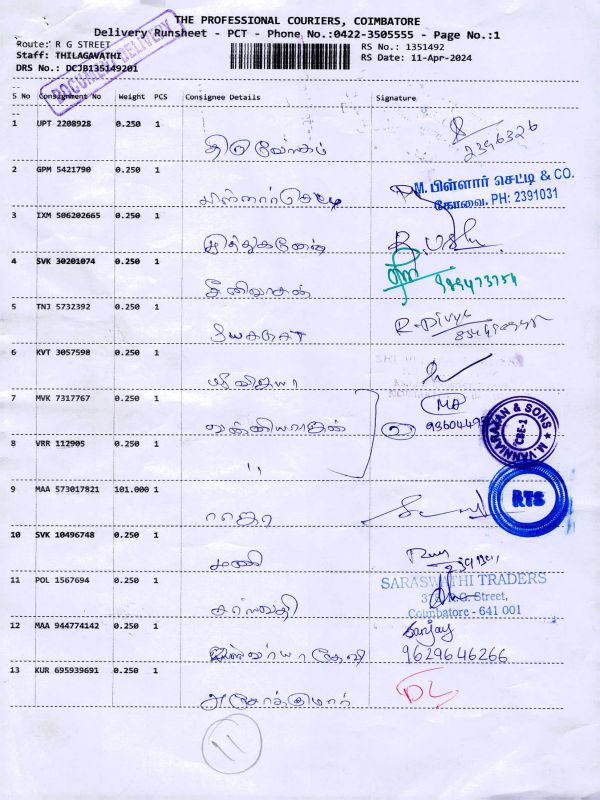 THE PROFESSIONAL COURIERS, COIMBATORE
Delivery Runsheet - PCT - Phone No.:0422-3505555 - Page No.:1
Route: R G STREET
Staff: THILAGAVATHI
DRS No.: DCJB135149201
RS No.: 1351492
RS Date: 11-Apr-2024
DOCUMENT DELIVERY
S No Consignment No Weight PCS Consignee Details Signature
1 UPT 2208928 0.250 1
2396326
2 GPM 5421790 0.250 1
M. பிள்ளார் செட்டி & CO.
கோவை. PH: 2391031
3 IXM 506202665 0.250 1
4 SVK 30201074 0.250 1
சீனிவாசன்
5 TNJ 5732392 0.250 1
R. Divya
6 KVT 3057598 0.250 1
ஸ்ரீ விஜயா
7 MVK 7317767 0.250 1
வன்னியராஜன்
93604
M. VANNIARAJAN & SONS
CBE-1
8 VRR 112905 0.250 1
,,
9 MAA 573017821 101.000 1
RTS
ராஜா
10 SVK 10496748 0.250 1
மணி
11 POL 1567694 0.250 1
SARASWATHI TRADERS
Street,
Coimbatore - 641 001
சரஸ்வதி
12 MAA 944774142 0.250 1
Sanjay
9629646266
13 KUR 695939691 0.250 1
DL
அசோக்குமார்
11